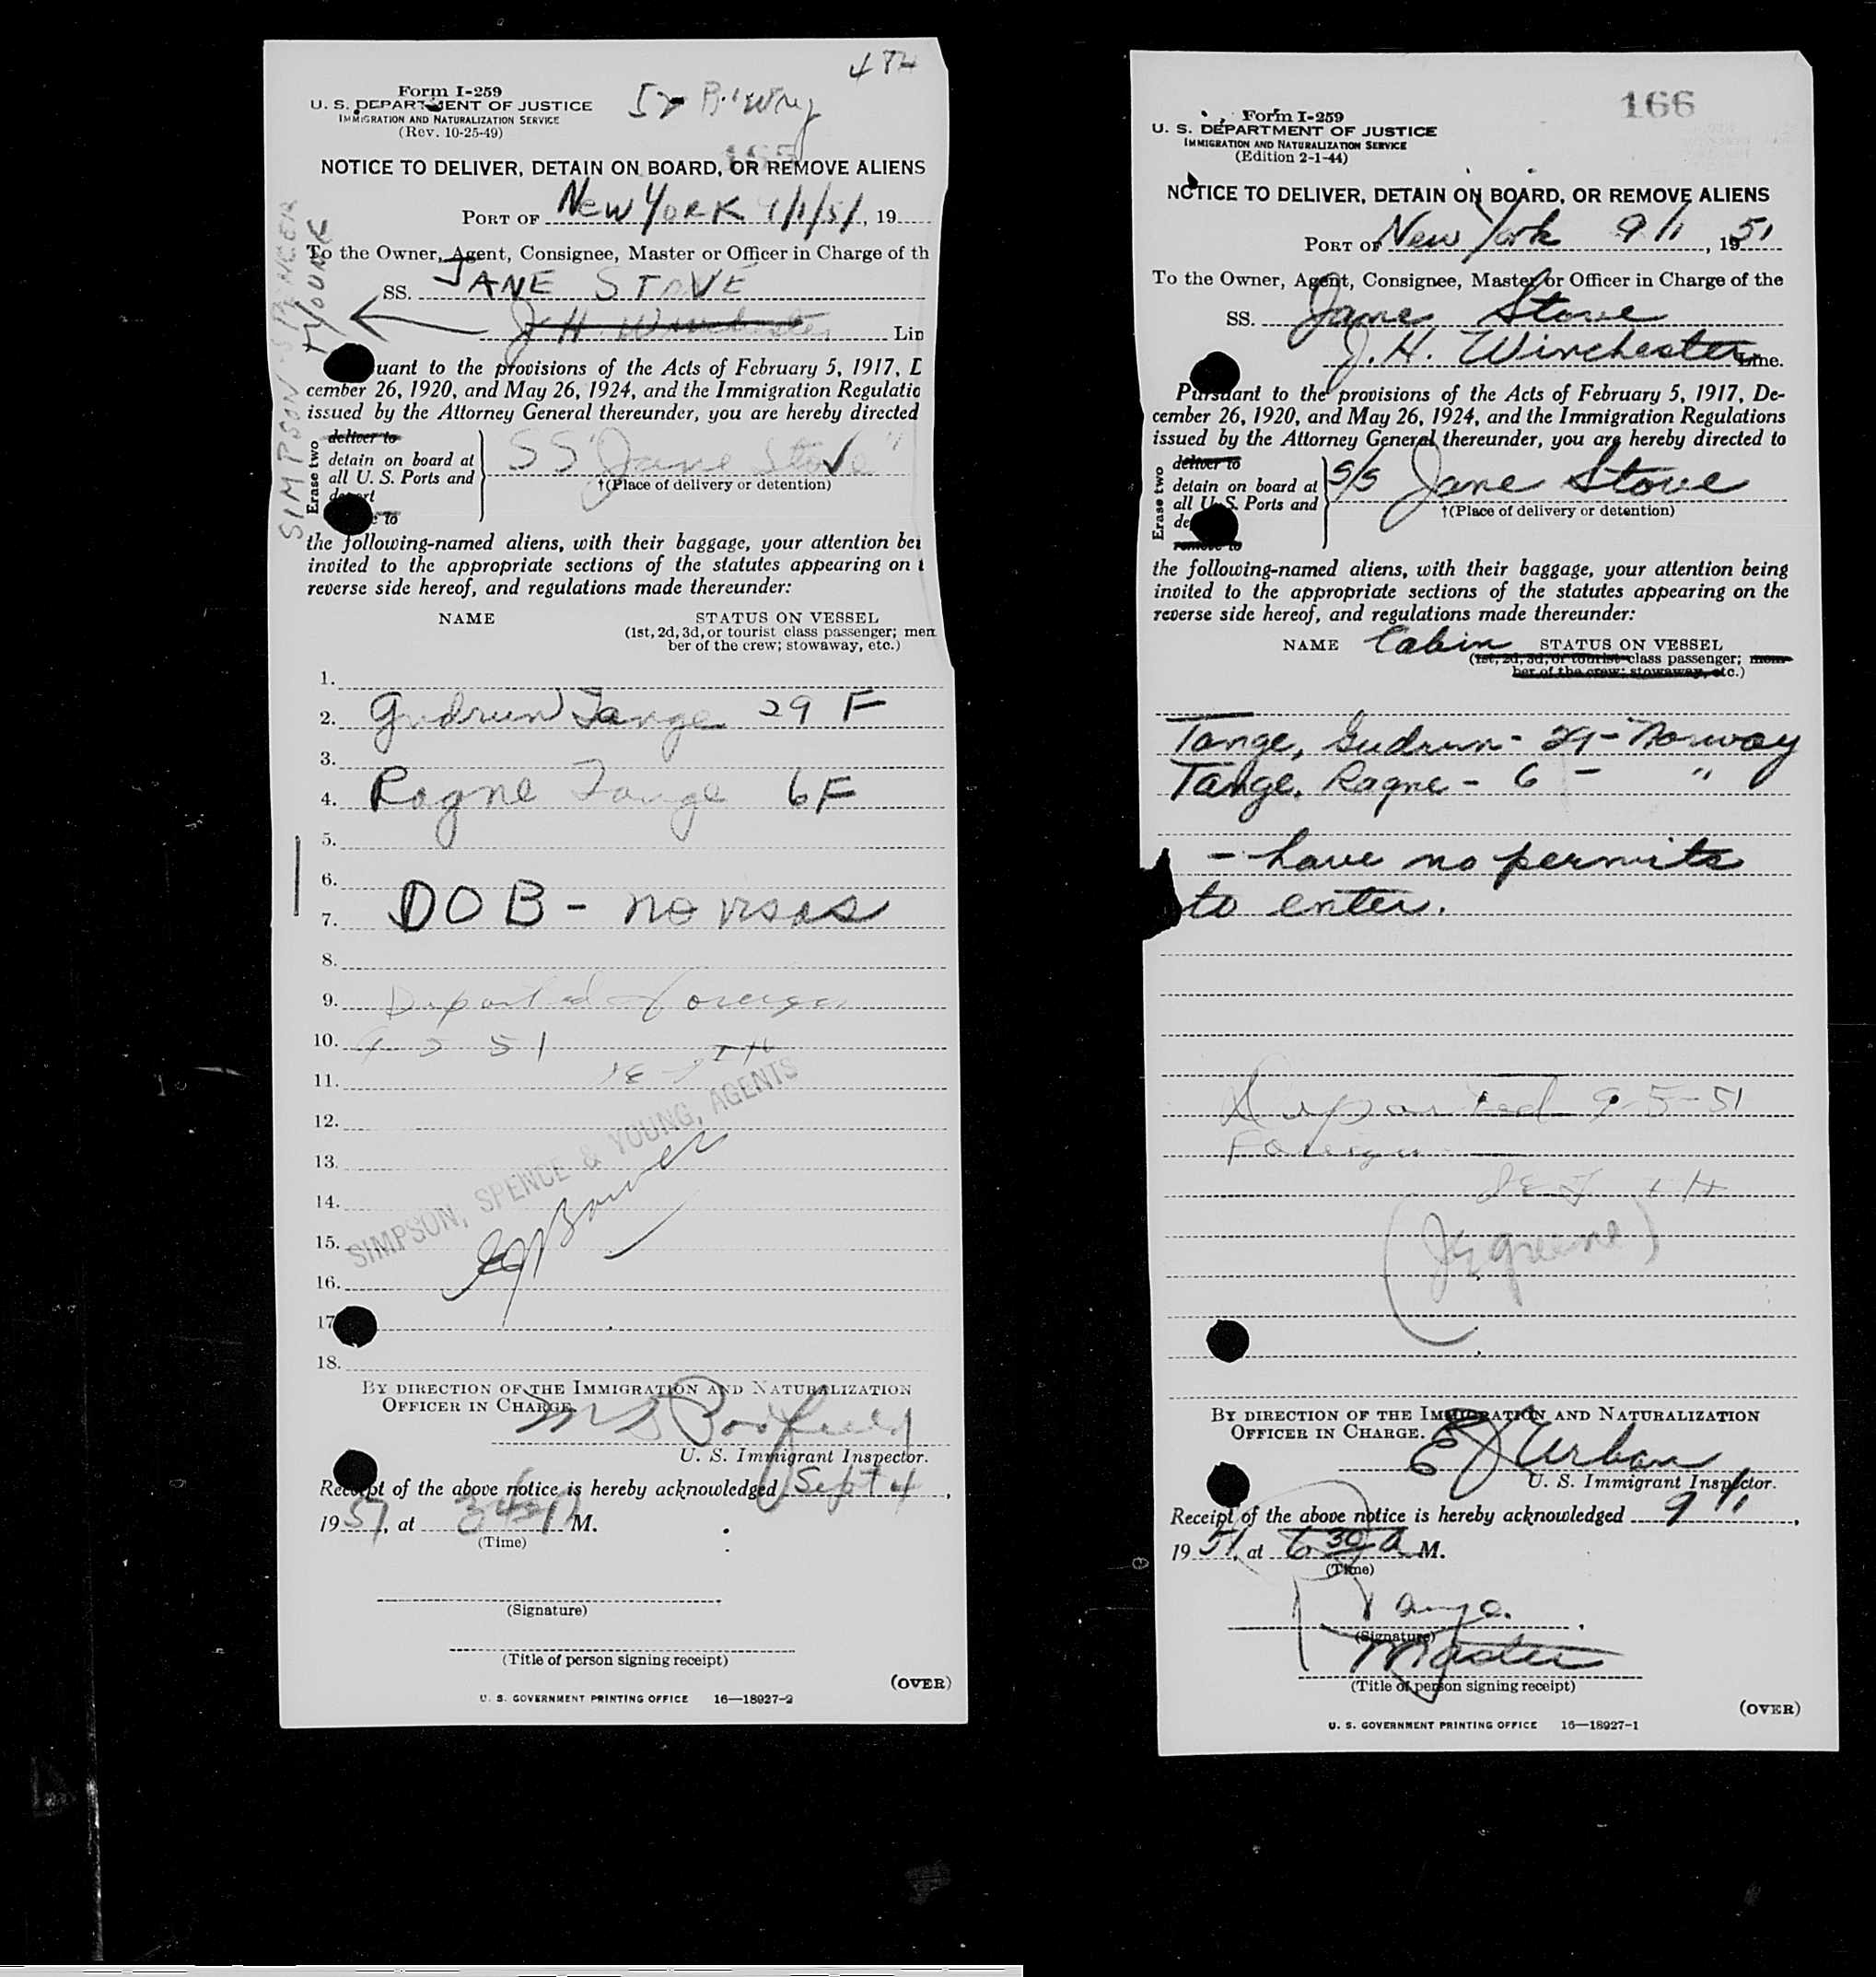 4TH
Form I-259
U. S. DEPARTMENT OF JUSTICE
IMMIGRATION AND NATURALIZATION SERVICE
(Rev. 10-25-49)
165
NOTICE TO DELIVER, DETAIN ON BOARD, OR REMOVE ALIENS
PORT OF New York 9/1/51, 19
To the Owner, Agent, Consignee, Master or Officer in Charge of th
SS. JANE STOVE
J. H. Winchester Lin
SIMPSON SPENCER
+ YOUNG
uant to the provisions of the Acts of February 5, 1917, D
cember 26, 1920, and May 26, 1924, and the Immigration Regulatio
issued by the Attorney General thereunder, you are hereby directed
Erase two
deliver to
detain on board at
all U. S. Ports and
deport
to
SS "Jane Stove"
†(Place of delivery or detention)
the following-named aliens, with their baggage, your attention bei
invited to the appropriate sections of the statutes appearing on t
reverse side hereof, and regulations made thereunder:
NAME STATUS ON VESSEL
(1st, 2d, 3d, or tourist class passenger; mem
ber of the crew; stowaway, etc.)
1.
2. Gudrun Tange 29 F
3.
4. Ragne Tange 6 F
5.
6.
7. DOB - no visas
8.
9. Departed foreign
10. 9 5 51
11.
12.
13.
14.
15.
16.
17
18.
SIMPSON, SPENCE & YOUNG, AGENTS
BY DIRECTION OF THE IMMIGRATION AND NATURALIZATION
OFFICER IN CHARGE.
U. S. Immigrant Inspector.
Receipt of the above notice is hereby acknowledged Sept 4,
1951, at M.
(Time)
(Signature)
(Title of person signing receipt)
(OVER)
U. S. GOVERNMENT PRINTING OFFICE 16—18927-2
166
Form I-259
U. S. DEPARTMENT OF JUSTICE
IMMIGRATION AND NATURALIZATION SERVICE
(Edition 2-1-44)
NOTICE TO DELIVER, DETAIN ON BOARD, OR REMOVE ALIENS
PORT OF New York 9/1, 1951
To the Owner, Agent, Consignee, Master or Officer in Charge of the
SS. Jane Stove
J. H. Winchester Line.
Pursuant to the provisions of the Acts of February 5, 1917, De-
cember 26, 1920, and May 26, 1924, and the Immigration Regulations
issued by the Attorney General thereunder, you are hereby directed to
Erase two
deliver to
detain on board at
all U. S. Ports and
de
remove to
S/S Jane Stove
†(Place of delivery or detention)
the following-named aliens, with their baggage, your attention being
invited to the appropriate sections of the statutes appearing on the
reverse side hereof, and regulations made thereunder:
NAME Cabin STATUS ON VESSEL
(1st, 2d, 3d, or tourist class passenger; mem-
ber of the crew; stowaway, etc.)
Tange, Gudrun - 29 - Norway
Tange, Ragne - 6 - "
- have no permits
to enter.
Departed 9-5-51
Foreign
BY DIRECTION OF THE IMMIGRATION AND NATURALIZATION
OFFICER IN CHARGE.
E J Urban
U. S. Immigrant Inspector.
Receipt of the above notice is hereby acknowledged 9/1,
1951, at 6 30 a M.
(Time)
Tange.
(Signature)
Master
(Title of person signing receipt)
(OVER)
U. S. GOVERNMENT PRINTING OFFICE 16—18927-1